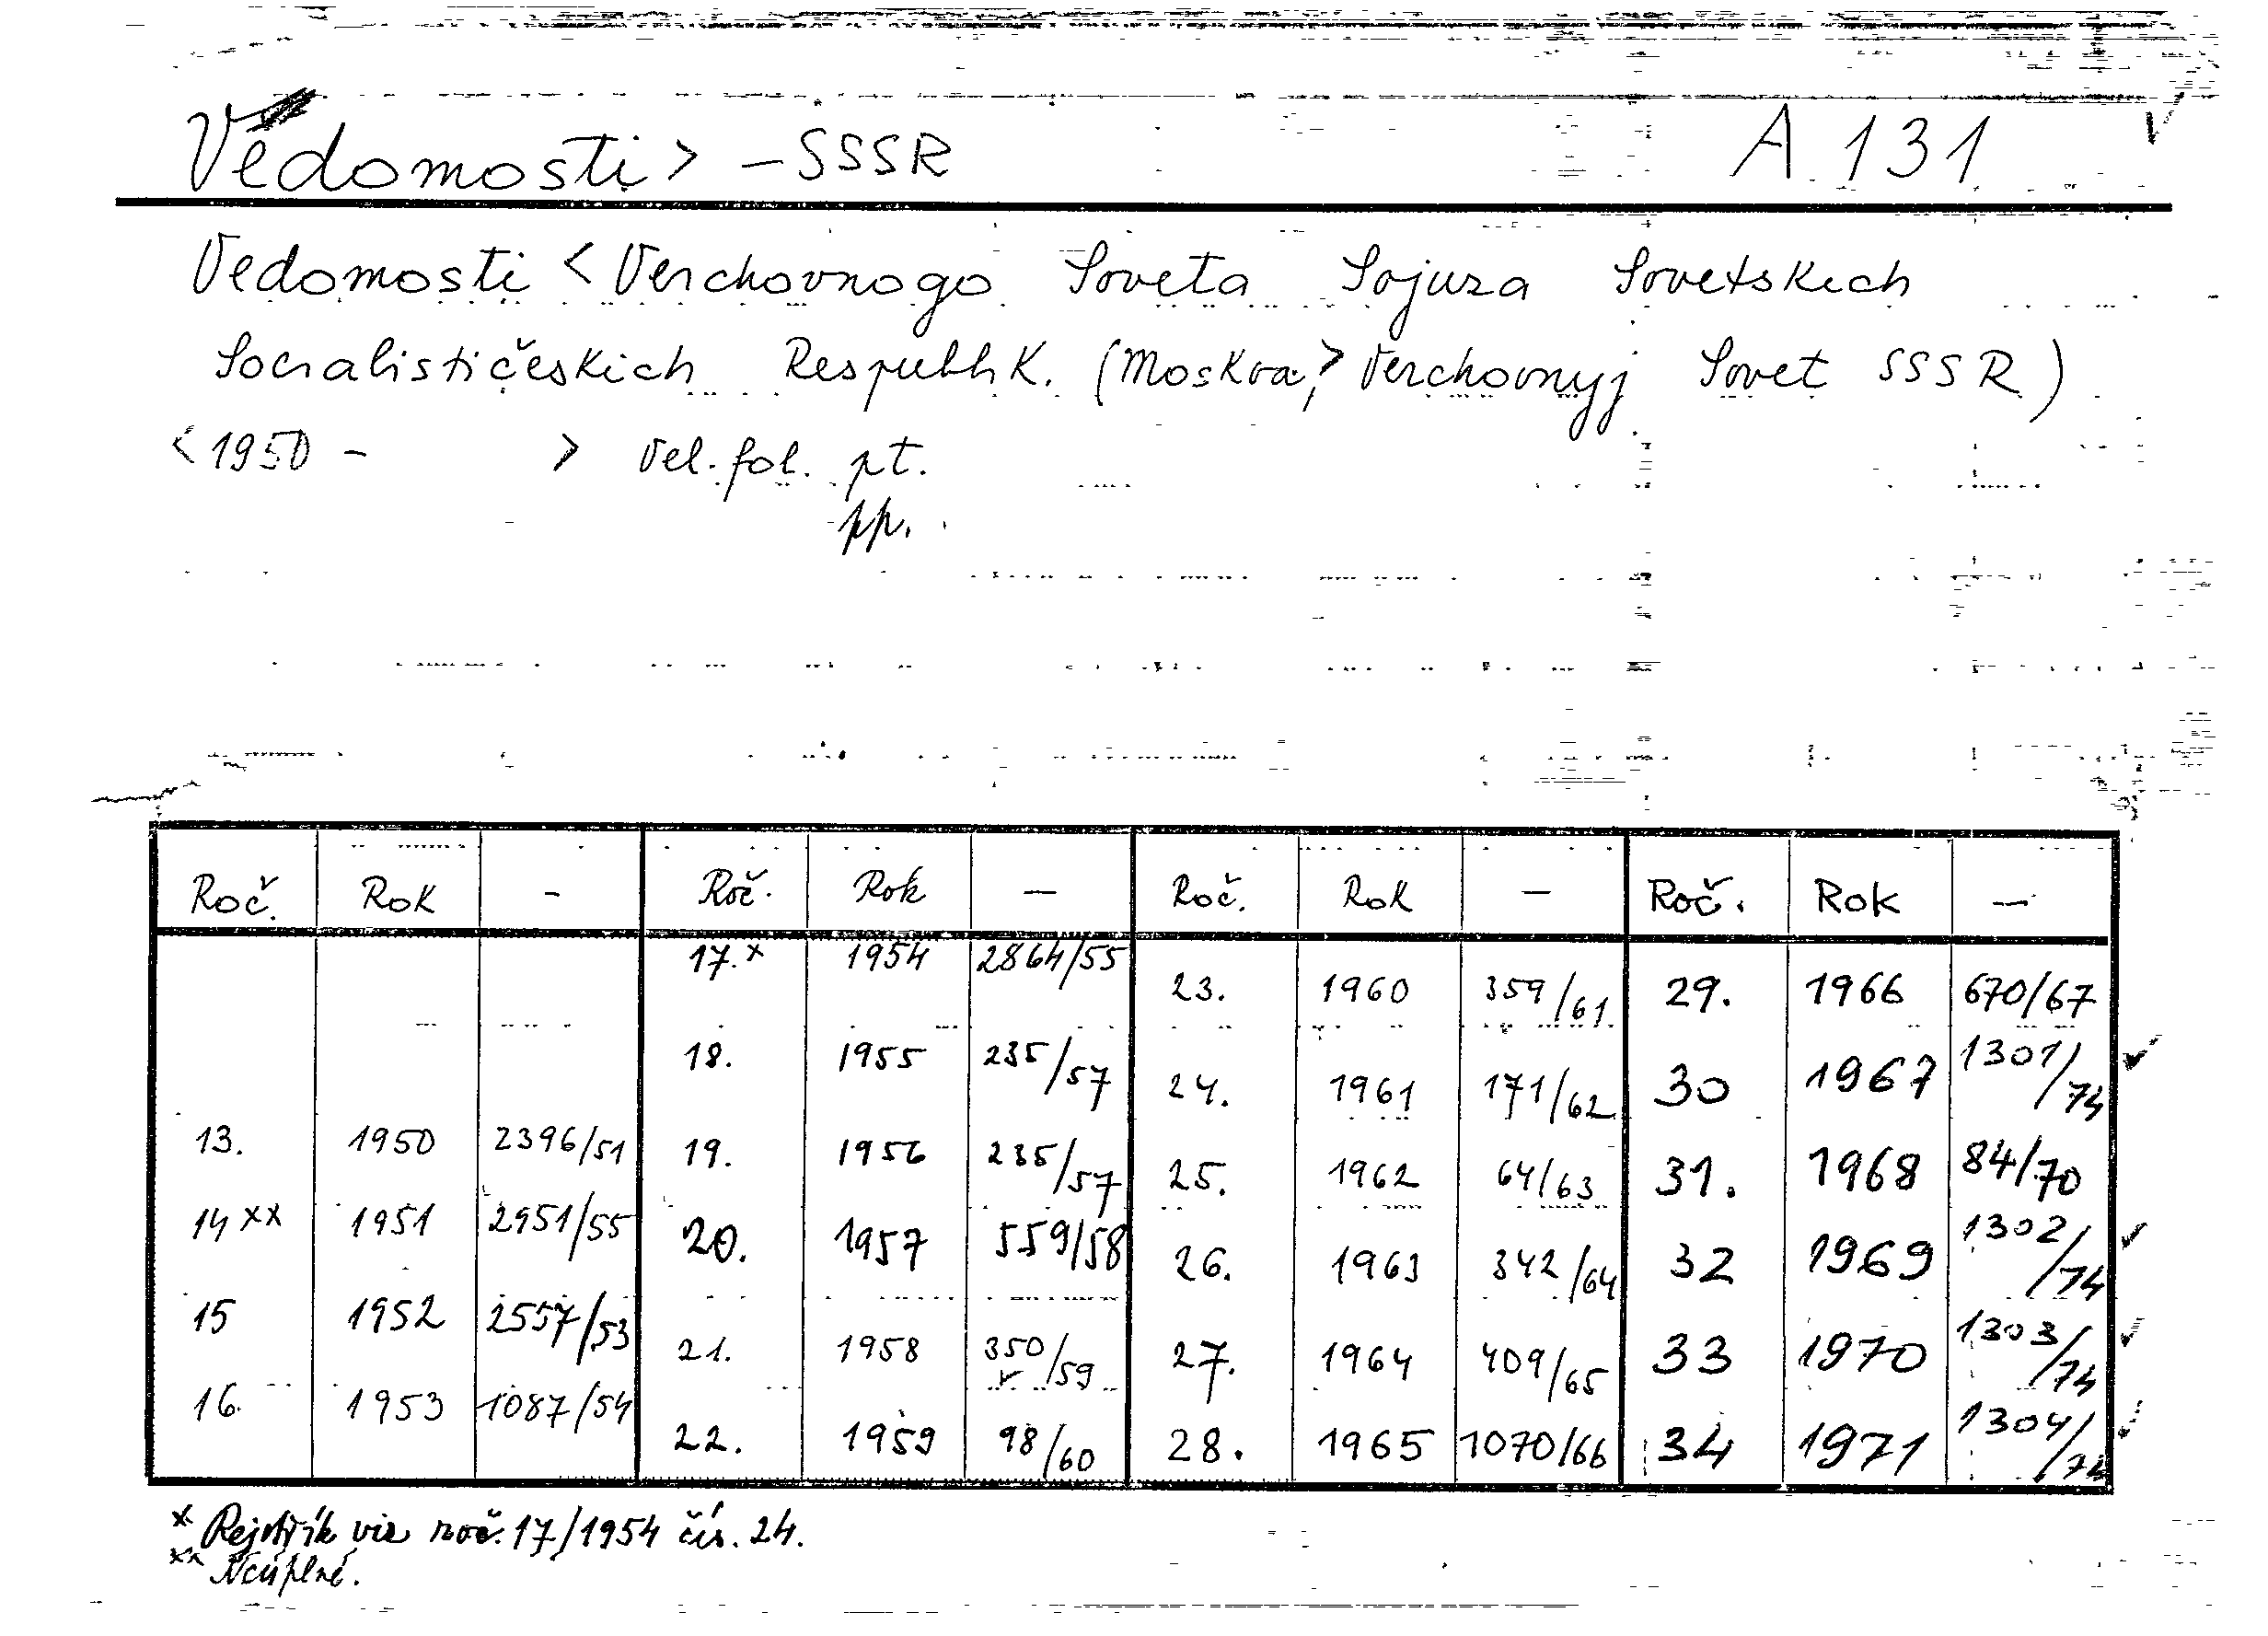 Vedomosti > - SSSR A 131 v
Vedomosti < Verchovnogo Soveta Sojuza Sovetskich
Socialističeskich Respublik. (Moskva,> Verchovnyj Sovet SSSR)
<1950 - > Vel. fol. pt.
pp.
Roč. Rok - Roč. Rok — Roč. Rok — Roč. Rok —
17.x 1954 2864/55 23. 1960 359/61 29. 1966 670/67
18. 1955 235/57 24. 1961 171/62 30 1967 1301/74 ✓
13. 1950 2396/51 19. 1956 235/57 25. 1962 64/63 31. 1968 84/70
14 xx 1951 2951/55 20. 1957 559/58 26. 1963 342/64 32 1969 1302/74 ✓
15 1952 2557/53 21. 1958 350/59 27. 1964 409/65 33 1970 1303/74 ✓
16. 1953 1087/54 22. 1959 98/60 28. 1965 1070/66 34 1971 1304/74 ✓
x Rejstřík viz roč. 17/1954 čís. 24.
xx Neúplné.